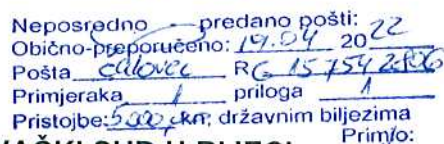 Neposredno predano pošti:
Obično-preporučeno: 19.04 2022
Pošta Čakovec RG 15 754 2806
Primjeraka 1 priloga 1
Pristojbe: 5000,kn, državnim biljezima
Primio:
SUD U RIJECI